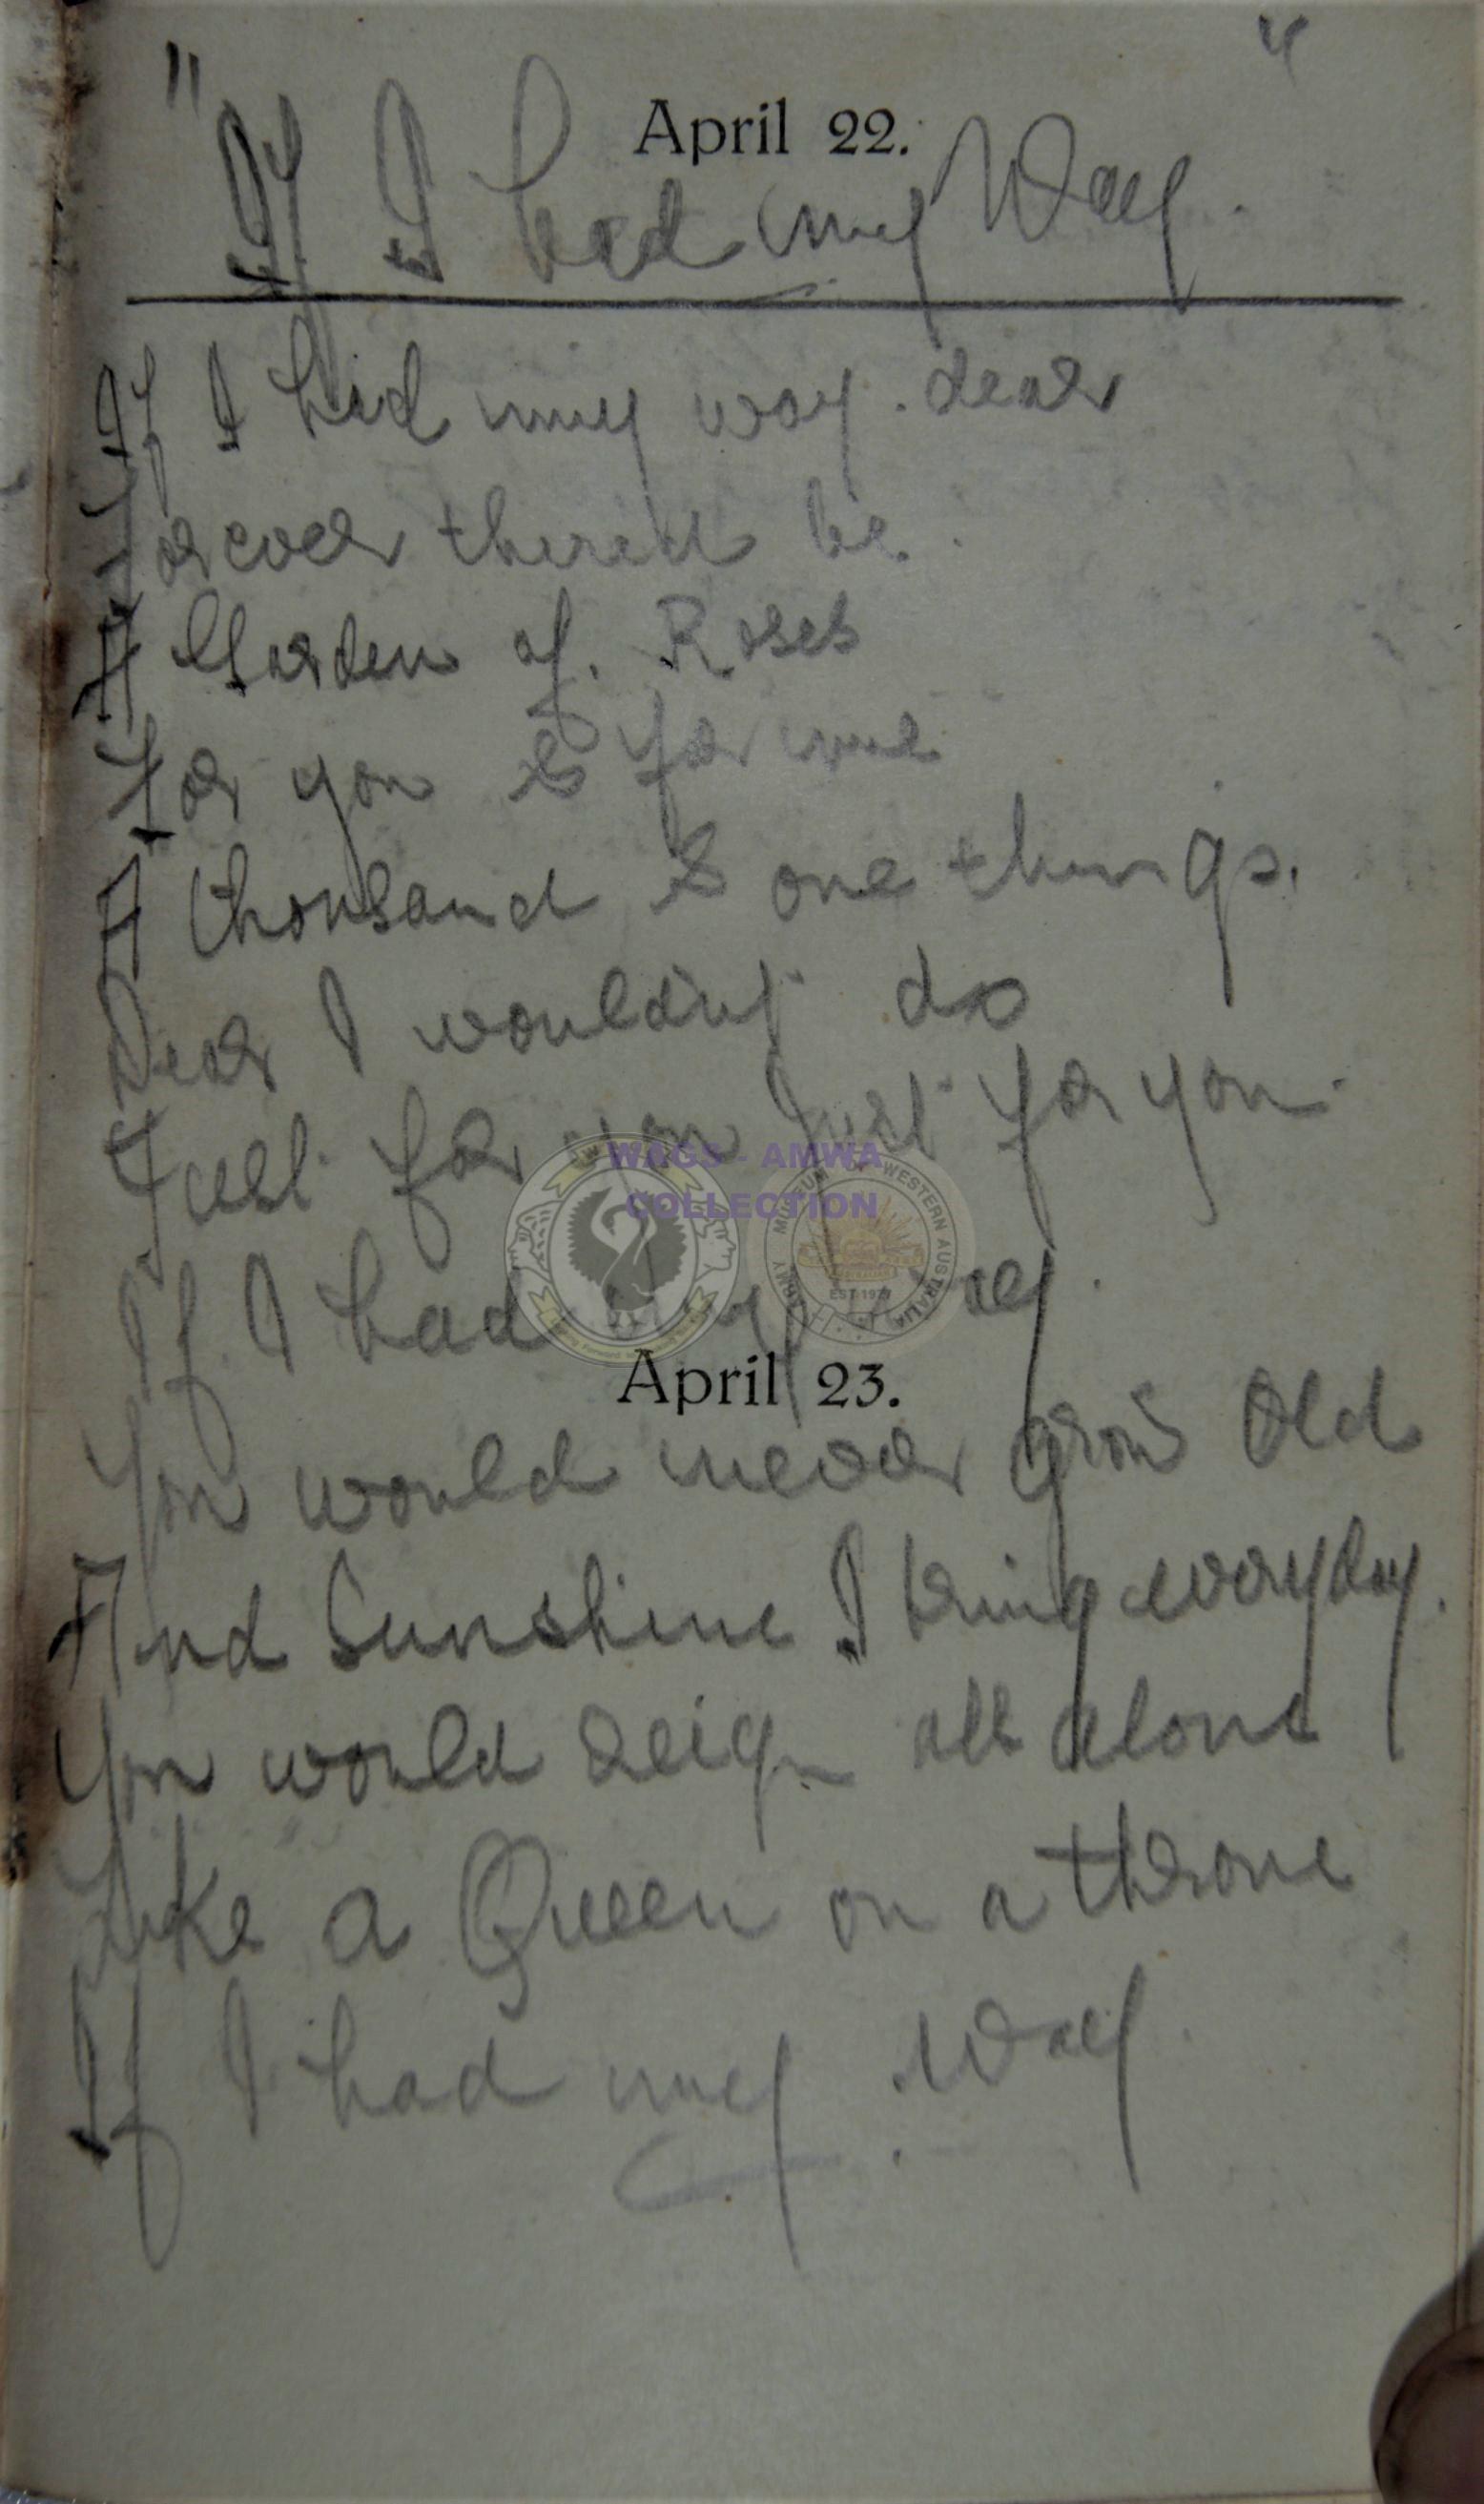 April 22.
" If I had my Way. "
If I had my way. dear
Forever thered be.
A Garden of. Roses
For you & for me
A thousand & one things.
Dear I wouldn't do
Just for you Just for you.
If I had my way.
WAGS - AMWA
COLLECTION
MUSEUM OF WESTERN AUSTRALIA
ARMY
EST 1977
April 23.
You would never grow Old
And Sunshine I bring everyday.
You would reign all alone
Like a Queen on a throne
If I had my Way.